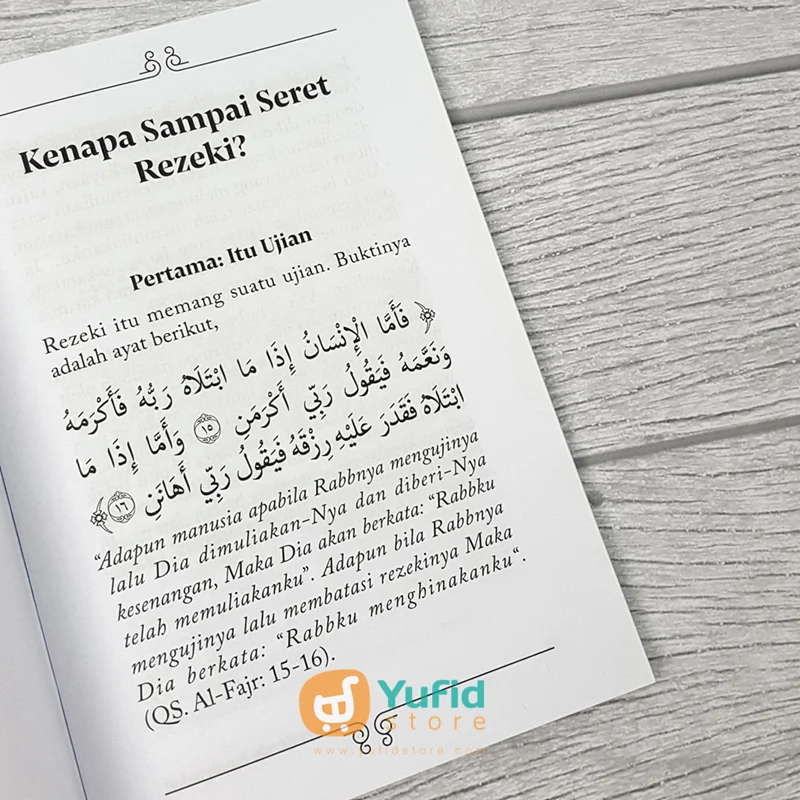 Kenapa Sampai Seret
Rezeki?
Pertama: Itu Ujian
Rezeki itu memang suatu ujian. Buktinya
adalah ayat berikut,
فَأَمَّا الْإِنْسَانُ إِذَا مَا ابْتَلَاهُ رَبُّهُ فَأَكْرَمَهُ
وَنَعَّمَهُ فَيَقُولُ رَبِّي أَكْرَمَنِ ١٥ وَأَمَّا إِذَا مَا
ابْتَلَاهُ فَقَدَرَ عَلَيْهِ رِزْقَهُ فَيَقُولُ رَبِّي أَهَانَنِ ١٦
“Adapun manusia apabila Rabbnya mengujinya
lalu Dia dimuliakan-Nya dan diberi-Nya
kesenangan, Maka Dia akan berkata: “Rabbku
telah memuliakanku”. Adapun bila Rabbnya
mengujinya lalu membatasi rezekinya Maka
Dia berkata: “Rabbku menghinakanku“.
(QS. Al-Fajr: 15-16).
Yufid
store
www.yufidstore.com